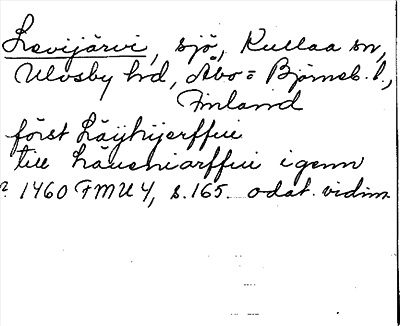 Levijärvi, sjö, Kullaa sn,
Ulvsby hd, Åbo = Björneb. l.,
Finland
först Läyhijerffui
till Läueniarffui igenn
? 1460 FMU 4, s. 165. odat. vidim.